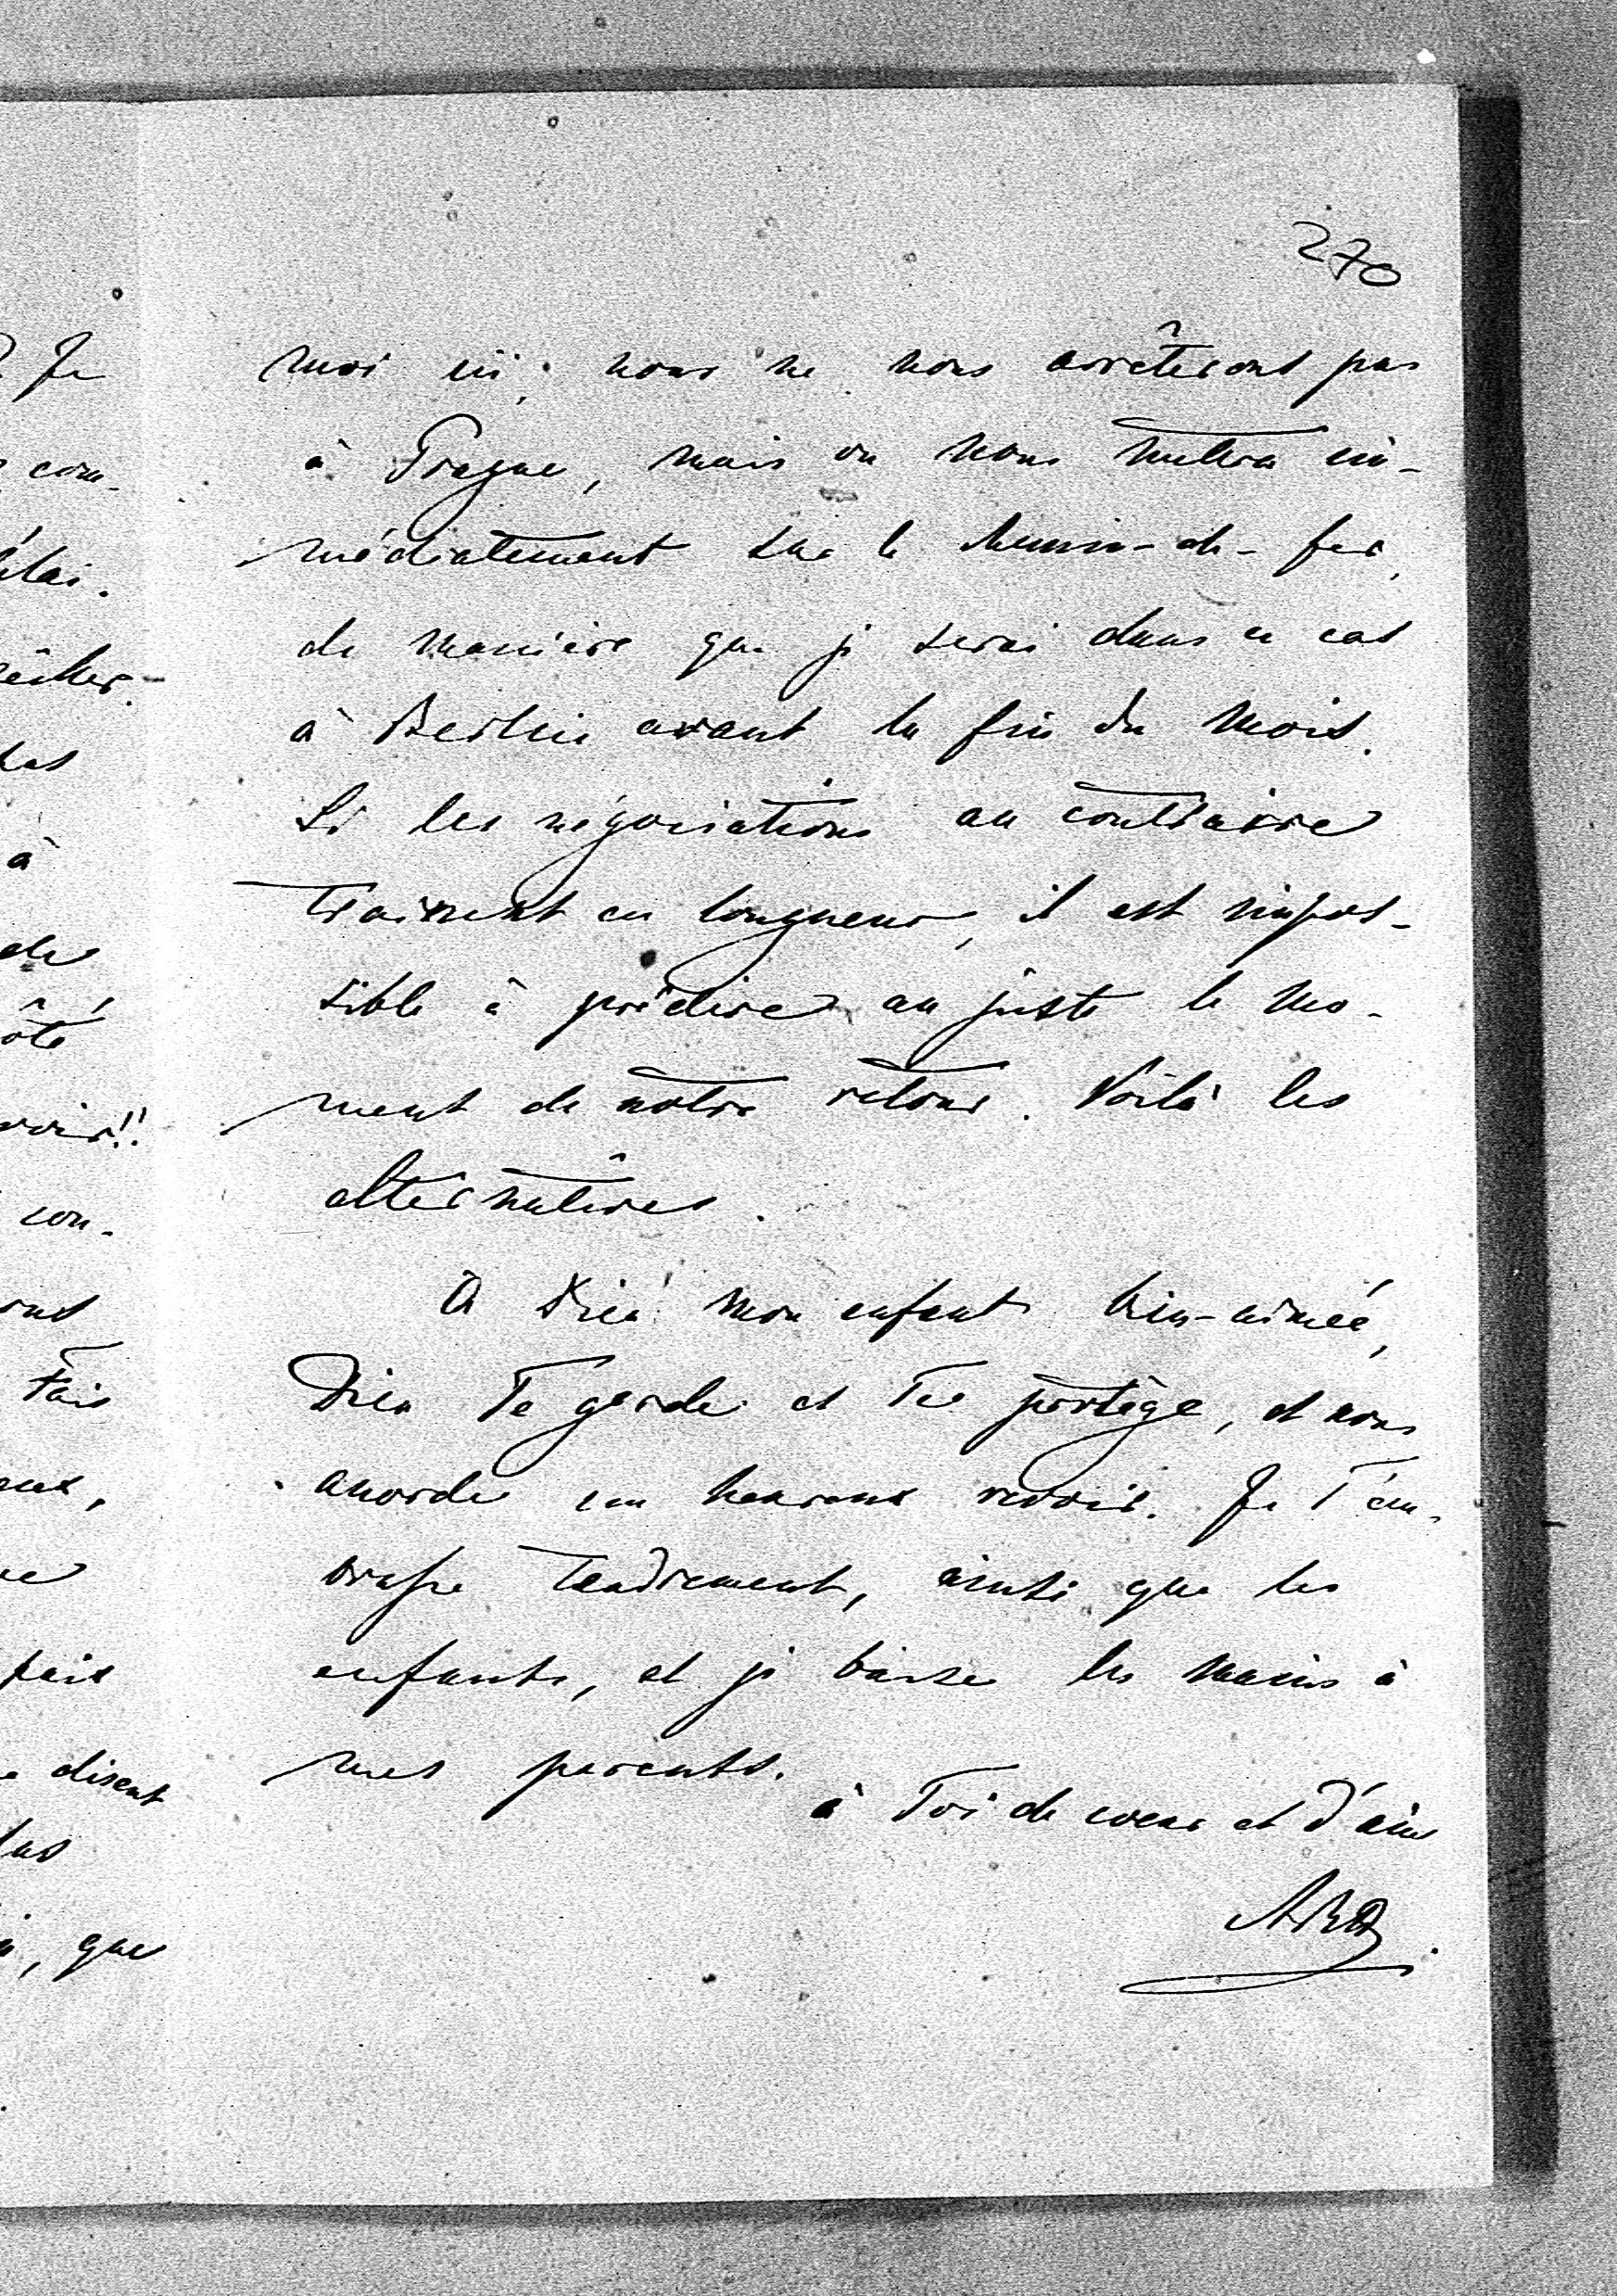 270
moi ici, nous ne nous arrêterons pas
à Prague, mais on nous mettra im-
médiatement sur le chemin-de-fer,
de manière que je serai dans ce cas
à Berlin avant la fin du mois.
Si les négociations au contraire
trainent en longueur, il est impos-
sible à prédire au juste le mo-
ment de notre retour. Voilà les
alternatives.
À Dieu mon enfant bien-aimée,
Dieu Te garde et Te protège, et nous
accorde un heureux revoir. Je T'em-
brasse tendrement, ainsi que les
enfants, et je baise les mains à
mes parents.
à Toi de coeur et d'âme
Je
com-
à
de
con-
Fais
disent
, que